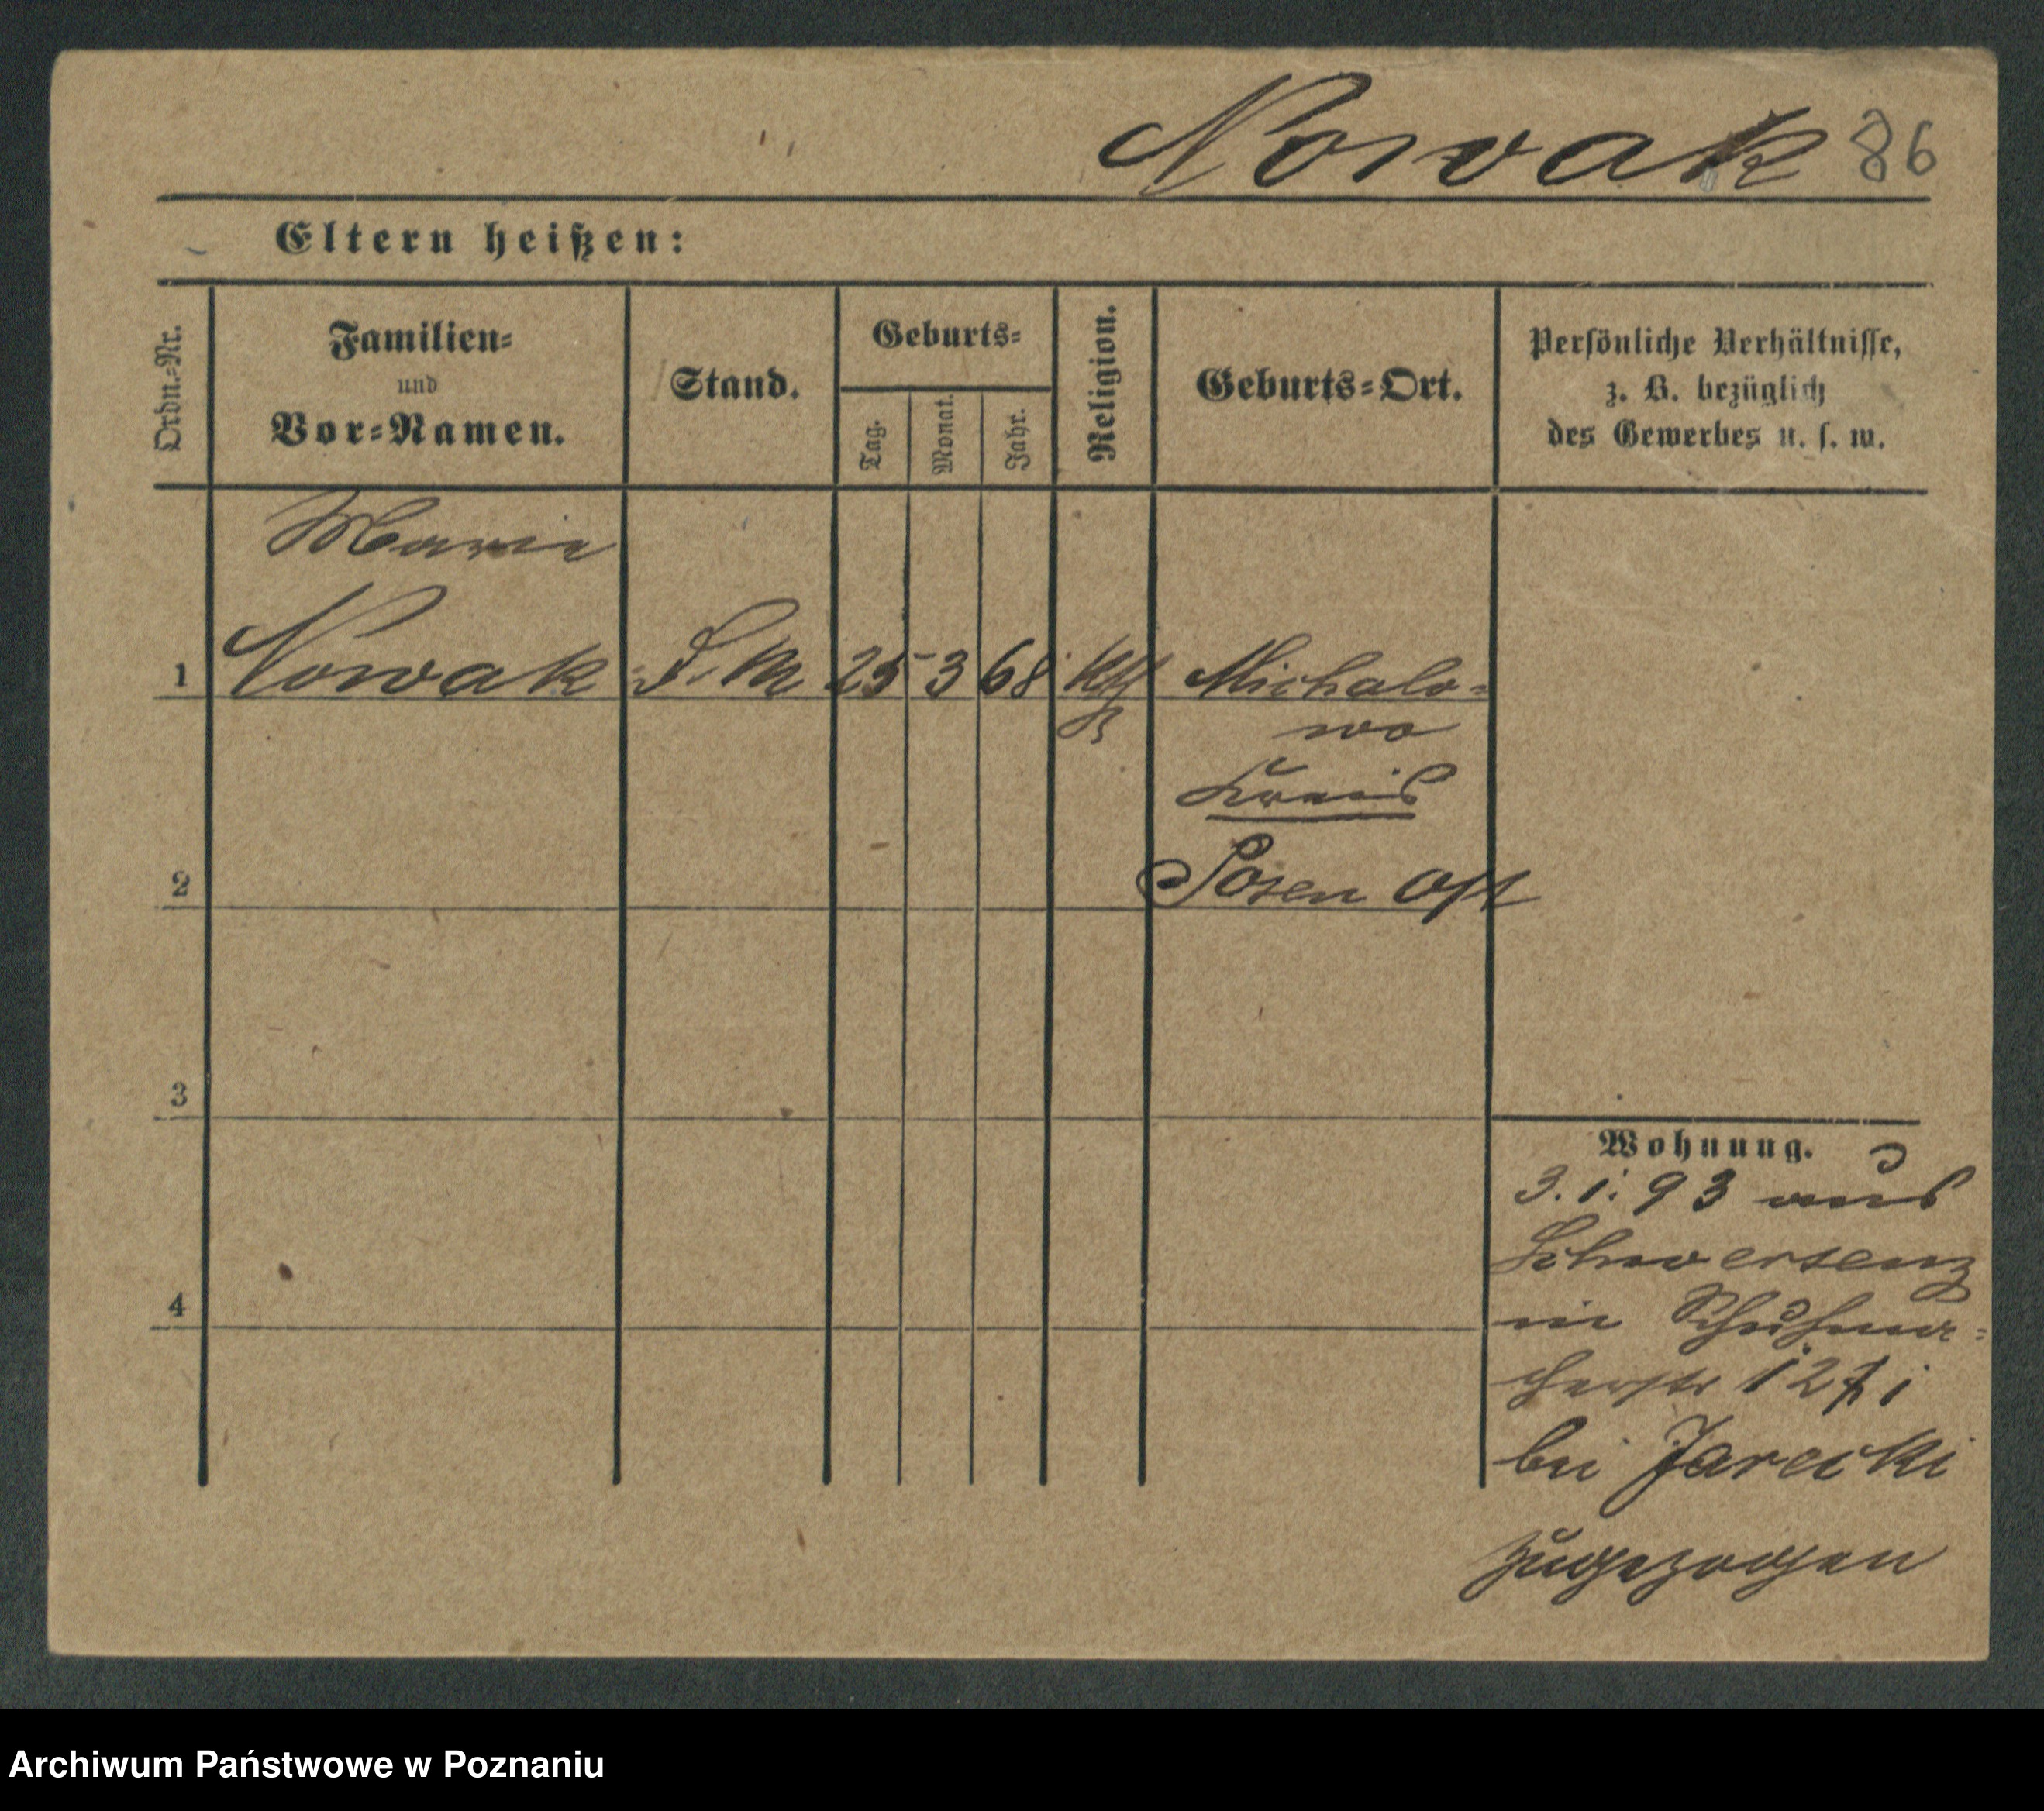 Nowak 86
Eltern heißen:
Ordn.-Nr.
Familien-
und
Vor-Namen.
Stand.
Geburts-
Tag.
Monat.
Jahr.
Religion.
Geburts-Ort.
Persönliche Verhältnisse,
z. B. bezüglich
des Gewerbes u. s. w.
Marie
1 Nowak D. M 25 3 68 Michalo-
wo
Kreis
2 Posen Ost
3
Wohnung.
3. 1. 93 aus
Schwersenz
in Schuhma-
4
cherstr 12
bei Jarecki
zugezogen
Archiwum Państwowe w Poznaniu